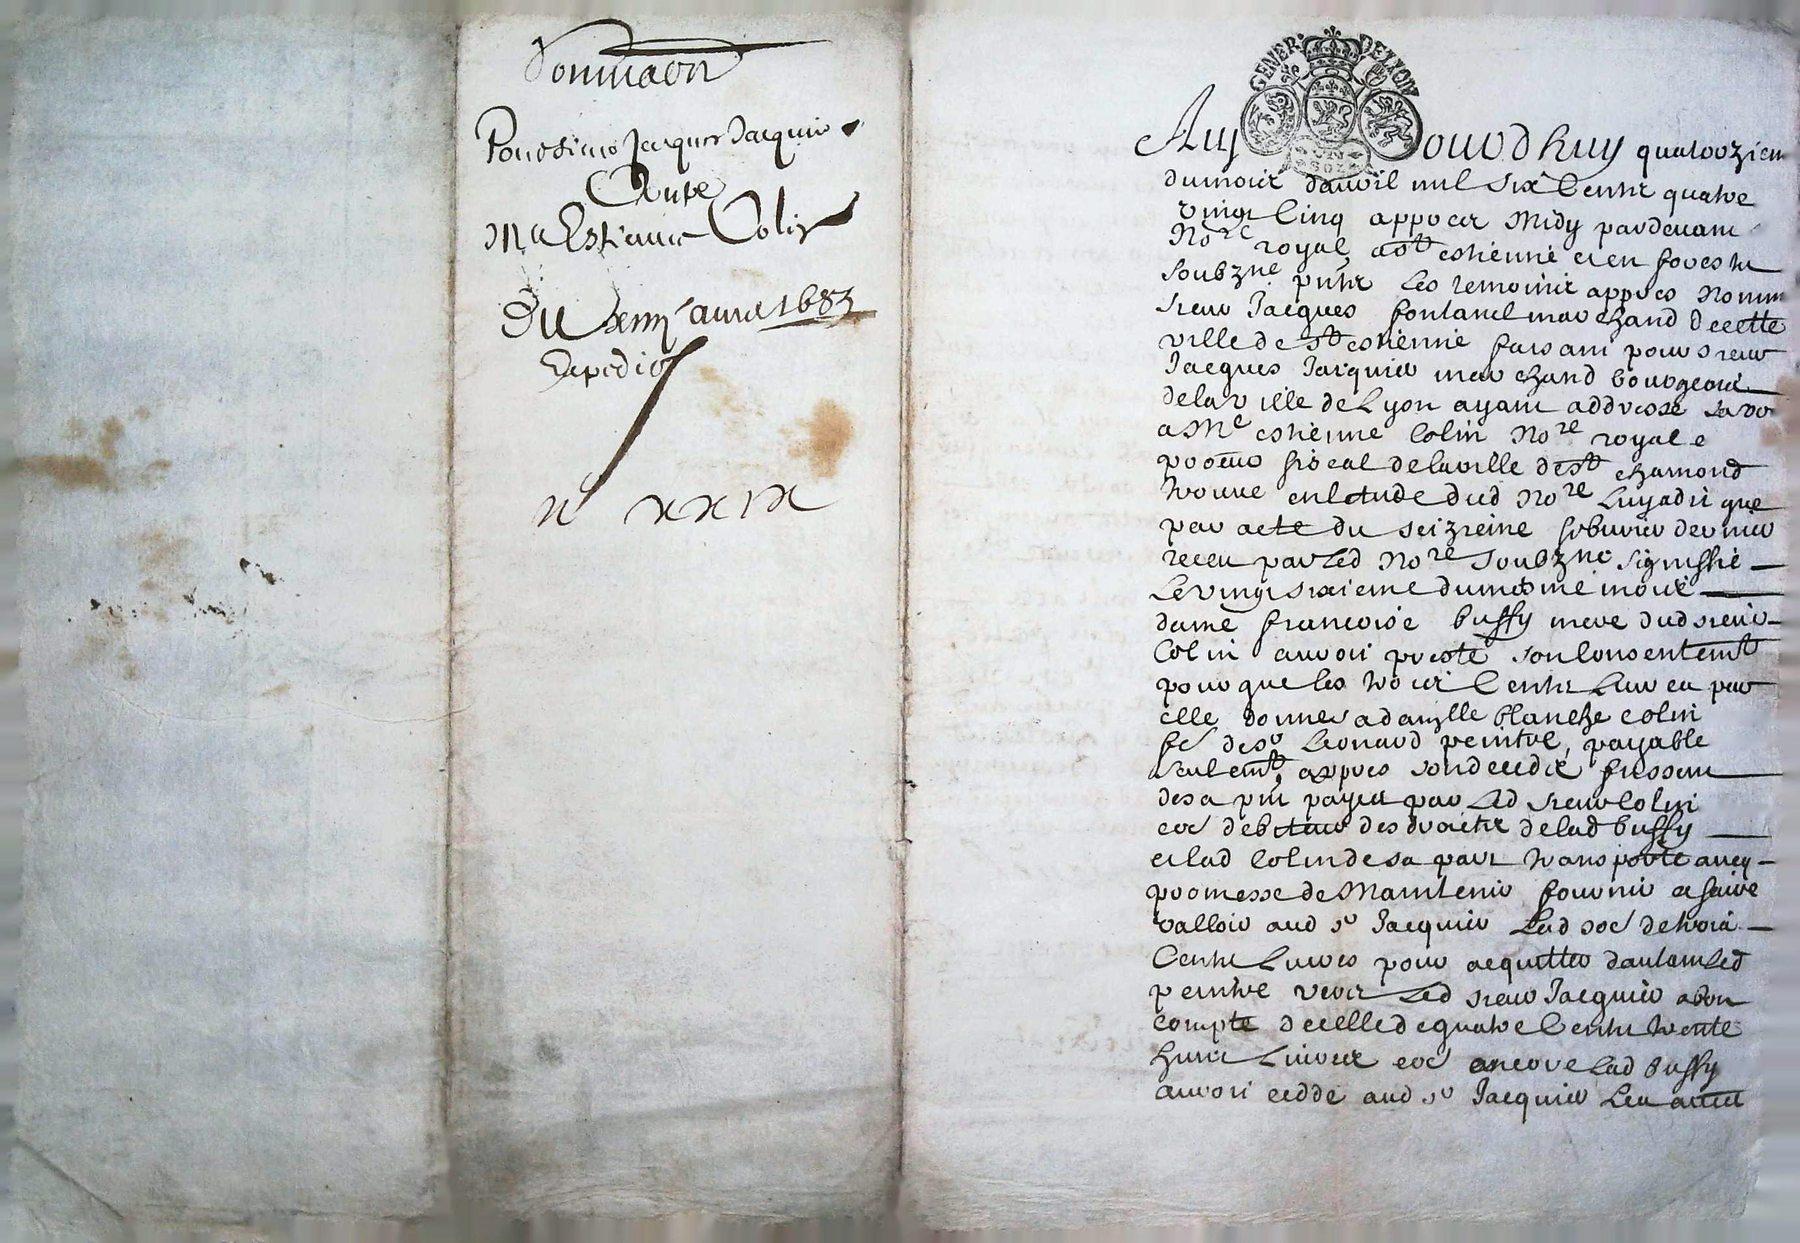 Sommaon
Pour sieur Jacques Jacquier
Contre
Me Estienne Colin
Du xiiij auril 1685
Expedie
n° xxix
GENER· DE LYON
Aujourdhuy quatorziem
du mois dauril mil six Cents quatre
vingt Cinq appres Midy pardeuant
Nore royal a st estienne et en forests
soubzne pnts les temoints appres nomm
sieur Jacques fontanel marchand de cette
ville de st estienne faisant pour sieur
Jacques Jacquier marchand bourgeois
de la ville de Lyon ayant addresse sa
a Me estienne Colin Nore royal e
procur fiscal de la ville de st chamond
trouue en letude dud Nore Luy a dit que
par acte du seizieme feburier dernier
receu par led Nore soubzne signiffié
Le vingt sixieme du mesme mois
dame francoise buffy mere dud sieur
Colin auroit preste son Consentemt
pour que les trois Cents Liures par
elle donnes a damlle blanche colin
fe de sr Leonard peintre, payable
seulemt appres son deceds fussent
des a pnt payes par Led sieur Colin
coe debiteur des droicts de lad buffy
et lad Colin de sa part transporte auec
promesse de Maintenir fournir et faire
valloir aud sr Jacquier Lad soe de trois
Cents Liures pour acquitter dautant Led
peintre vers Led sieur Jacquier a bon
compte de celle de quatre Cents trente
huict Liures coe encore Lad buffy
auroit cedde aud sr Jacquier Les